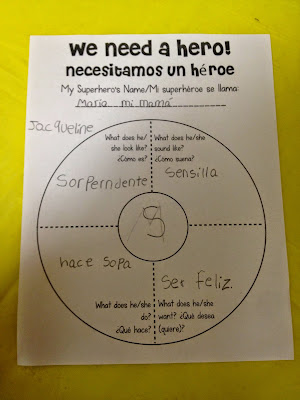 we need a hero!
necesitamos un héroe
My Superhero's Name/Mi superhéroe se llama:
Maria mi mamá
Jacqueline
What does he/
she look like?
¿Cómo es?
Sorperndente
What does he/she
sound like?
¿Cómo suena?
Sensilla
S
hace sopa
What does he/she
do?
¿Qué hace?
Ser feliz.
What does he/she
want? ¿Qué desea
(quiere)?